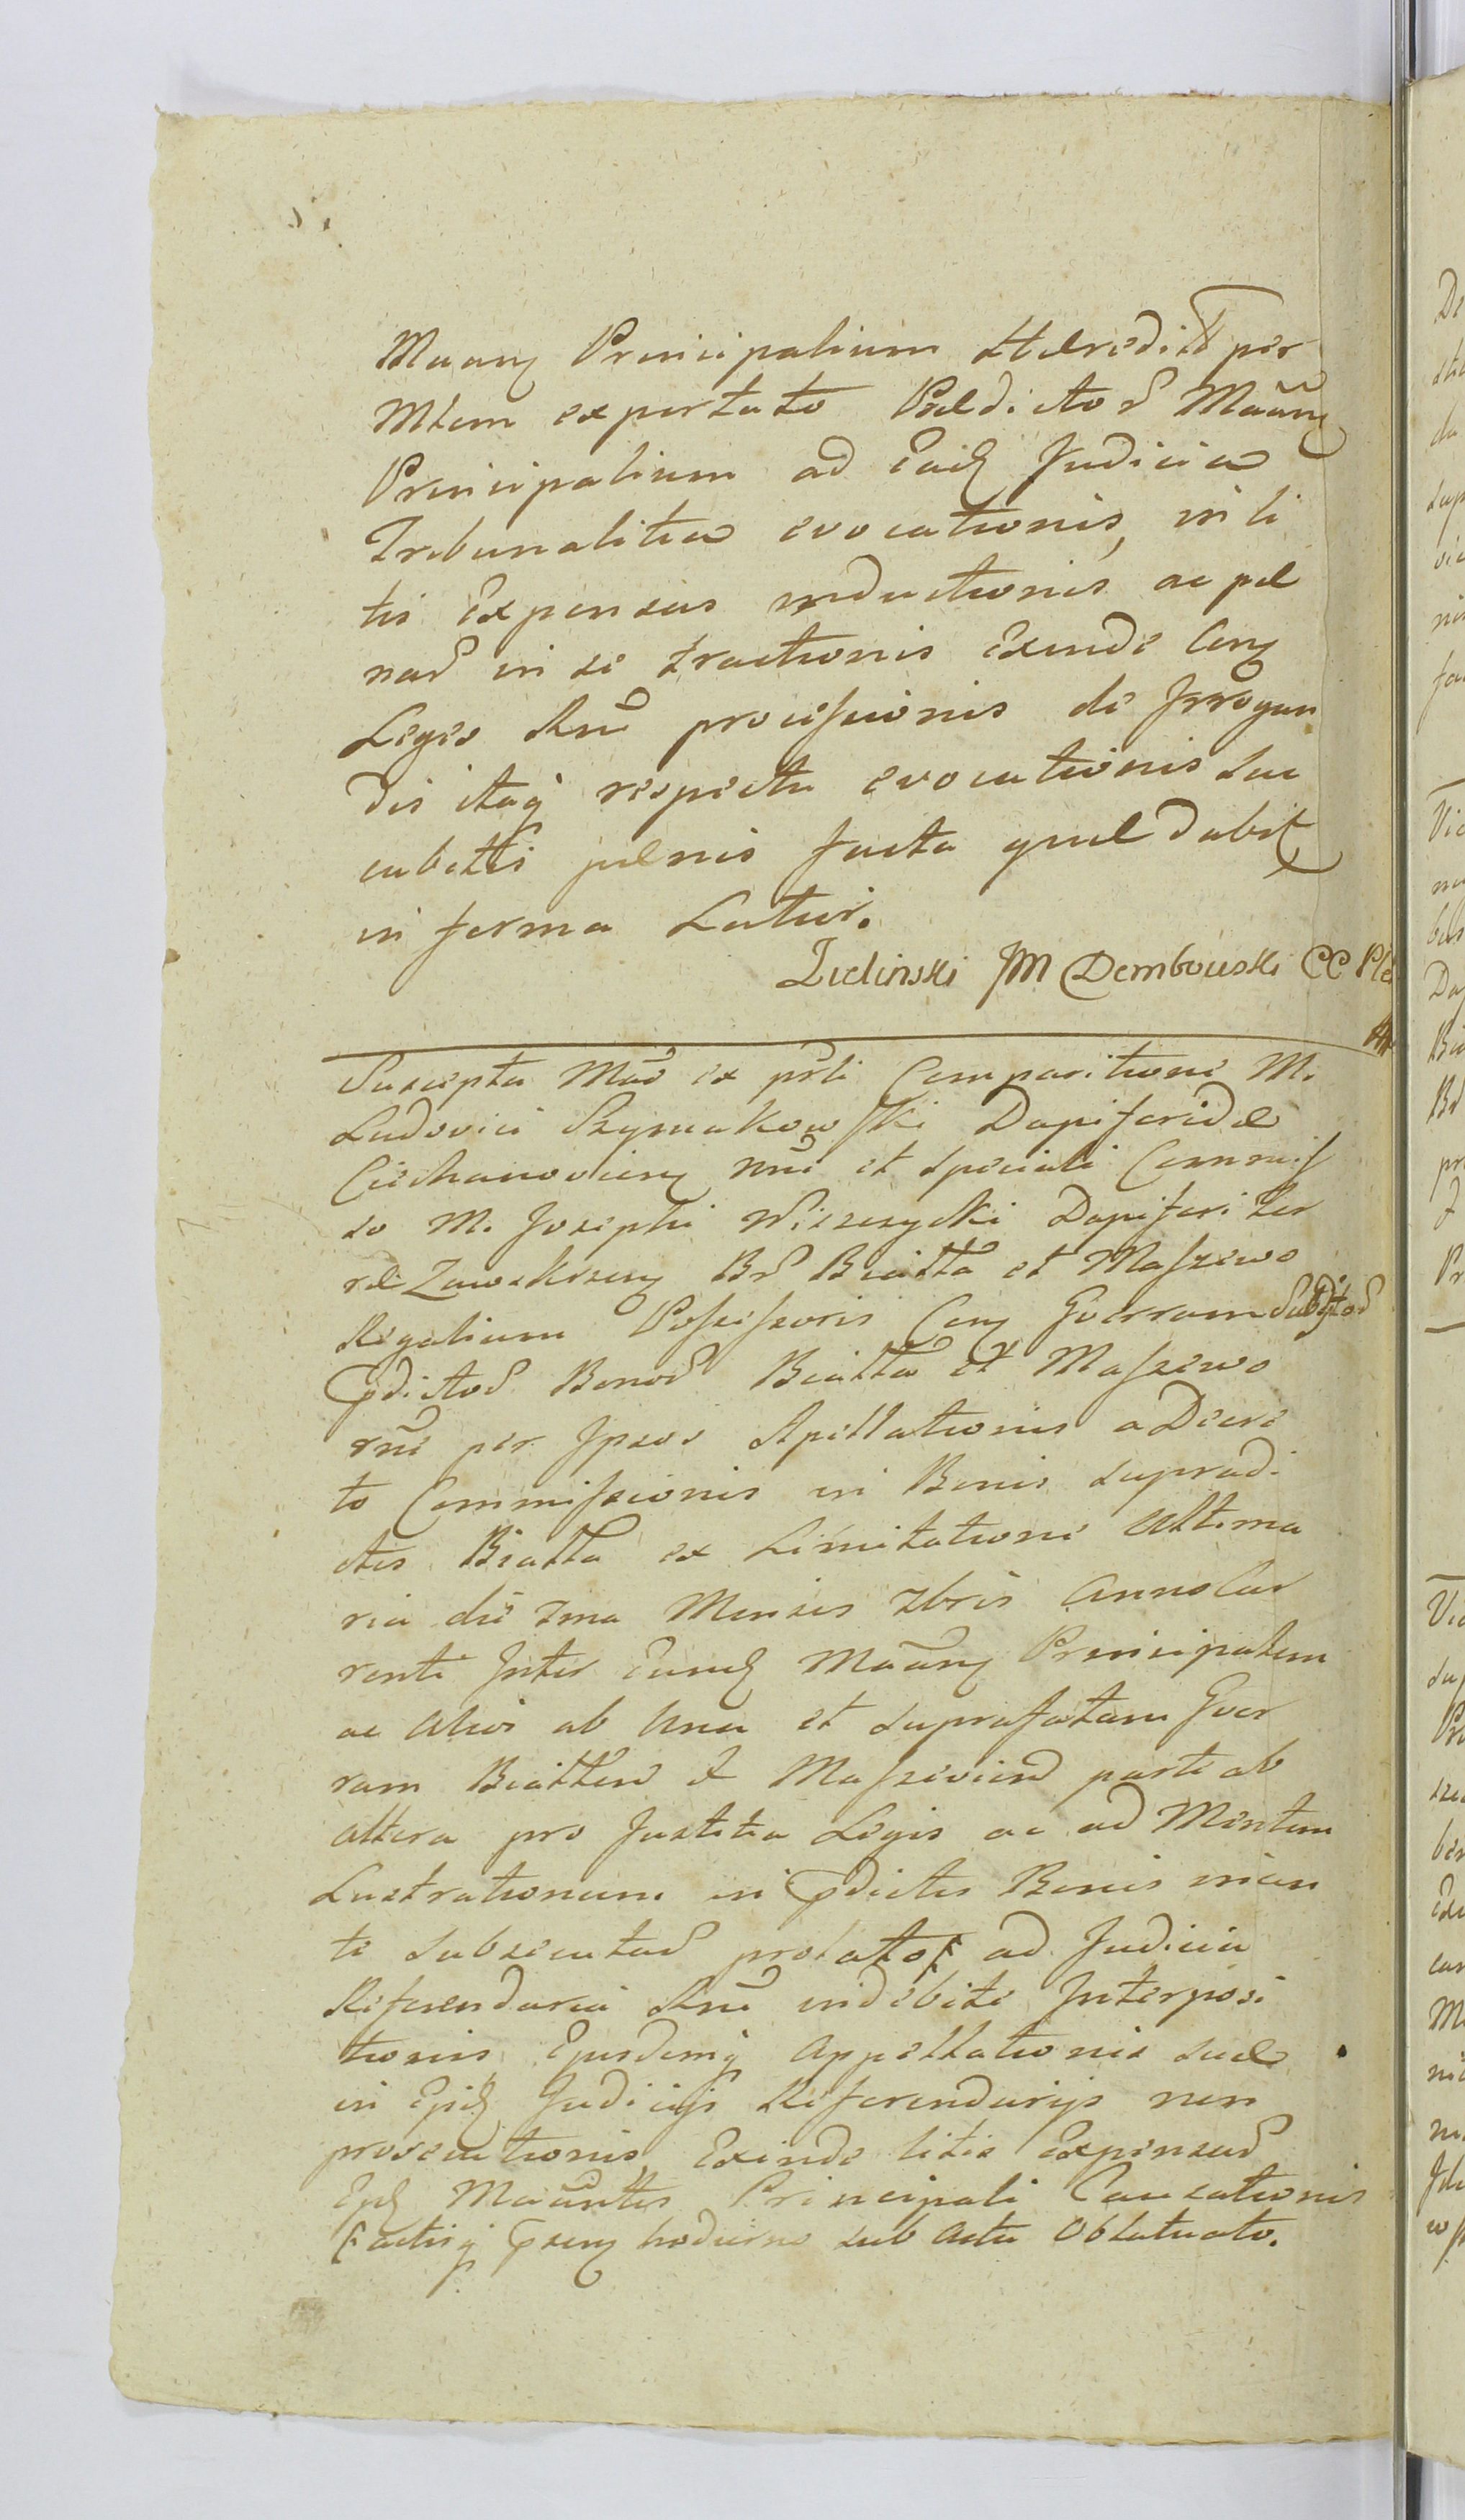 Maanz Principalium Haeredit per
Mtem exportato Praedictor Maanz
Principalium ad Eaiz Judicia
Tribunalitia evocationis, in li
tis Expensas inductionis ac pae
nar in se tractionis Exinde Conz
Leges Rni processionis de Irrogan
dis itaq respectu evocationis suc
cubitis paenis Juxta quae dabit
in forma Latius.
Zielinski JM Dembowski CC
Suscepta Mar ex prli Comparitione M.
Ludovici Szymakowski Dapiferidae
Ciechanovienz nne et speciali Commis
so M. Josephi Dapiferi ter
rae Zawskrzenz Br Biatta et Maszewo
Regalium Possessoris Conz Gverram Subditor
pdictor Bonor Biatta et Maszewo
rne per Ipsos Apellationis a Decre
to Commissionis in Bonis supradi
ctis Biatta ex Limitatione Ultima
ria die 2ma Mensis Xbris Anno Cur
rente Inter Eundz Maanz Principalem
ac Alios ab Una et suprafatam Gver
ram Biatten et Maszevien parte ab
altera pro Justitia Legis ac ad Mentem
Lustrationum in pdictis Bonis
te subsecutar prolato ad Judicia
Referendaria Rni indebite Interposi
tionis Ejusdemq Appellationis suae
in Ejsdz Judicijs Referendarijs non
prosecutionis Exinde litis Expensar
Principali Causationis
Factiq psenz hodierno sub Actu Oblatuato.